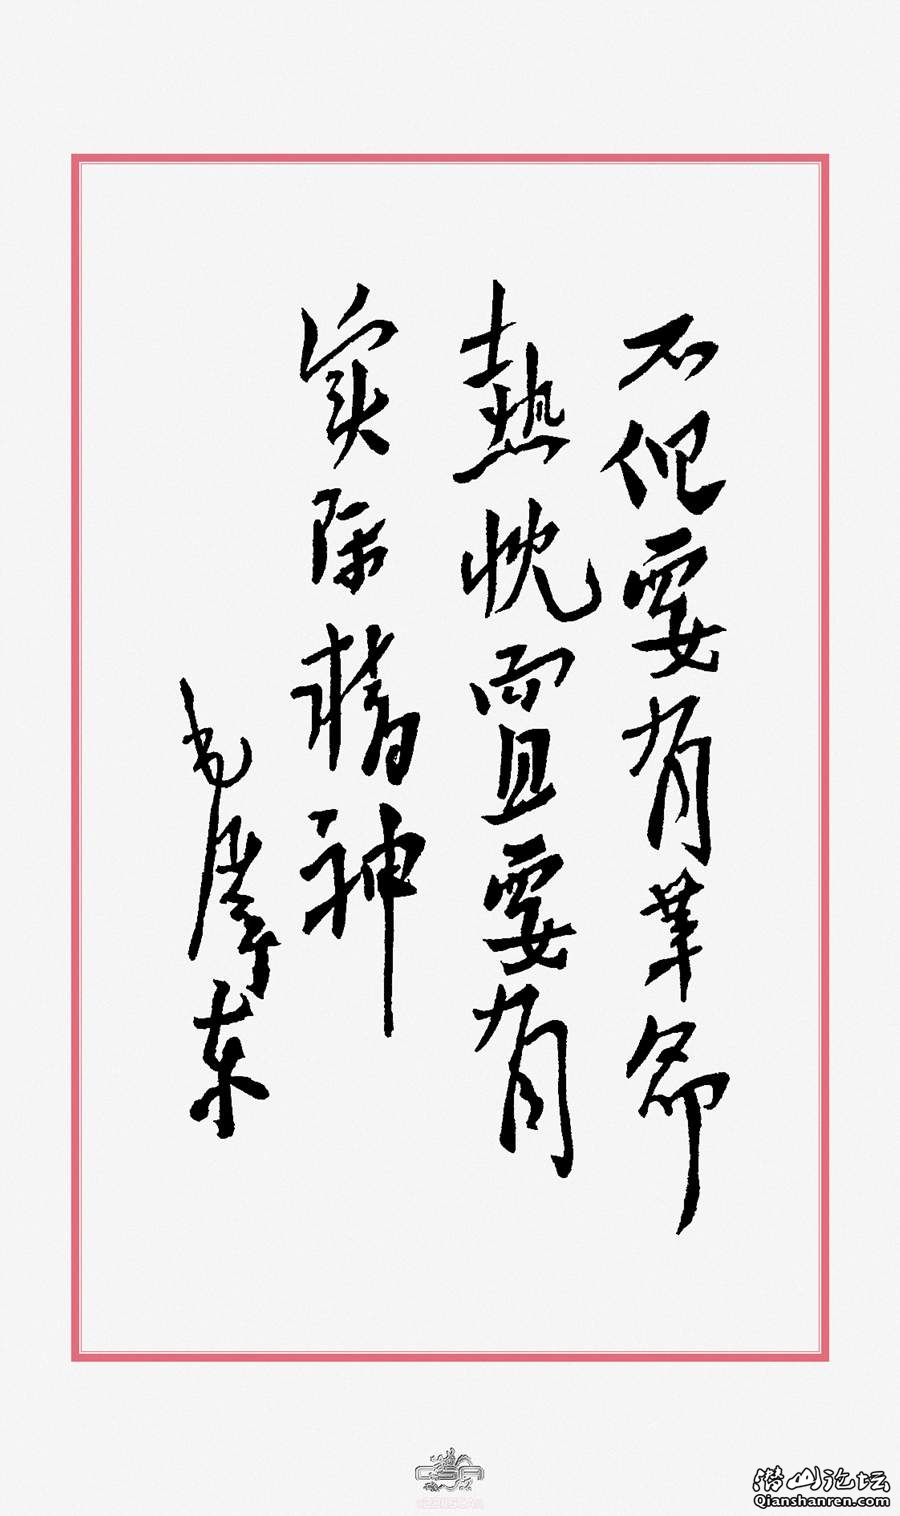 不但要有革命
热忱而且要有
实际精神
毛泽东
CSA
潜山论坛
Qianshanren.com